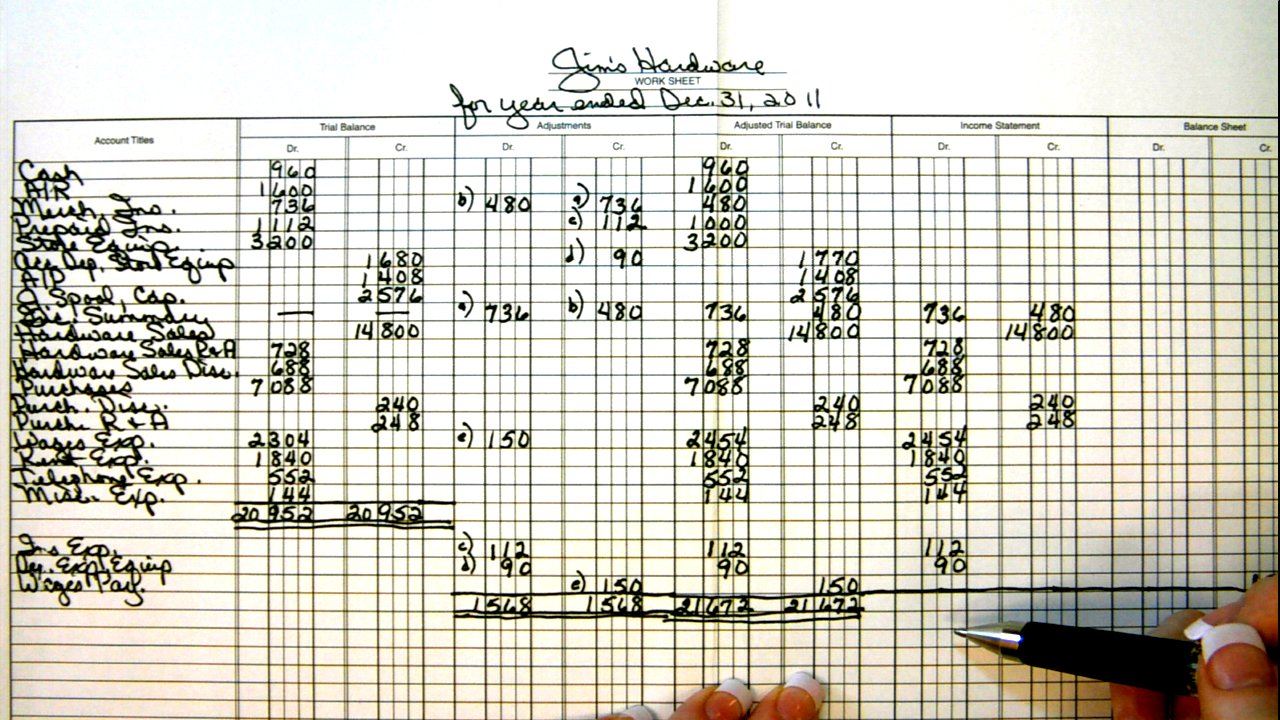 Jim's Hardware
WORK SHEET
for year ended Dec. 31, 2011
Account Titles Trial Balance Adjustments Adjusted Trial Balance Income Statement Balance Sheet
Dr. Cr. Dr. Cr. Dr. Cr. Dr. Cr. Dr. Cr.
Cash 960 960
A/R 1600 1600
Merch. Ins. 736 b) 480 a) 736 480
Prepaid Ins. 1112 c) 112 1000
Store Equip. 3200 3200
Acc. Dep. Store Equip 1680 d) 90 1770
A/P 1408 1408
O. Spool, Cap. 2576 2576
Inc. Summary — — a) 736 b) 480 736 480 736 480
Hardware Sales 14800 14800 14800
Hardware Sales R+A 728 728 728
Hardware Sales Disc. 688 688 688
Purchases 7088 7088 7088
Purch. Disc. 240 240 240
Purch. R+A 248 248 248
Wages Exp. 2304 e) 150 2454 2454
Rent Exp. 1840 1840 1840
Telephone Exp. 552 552 552
Misc. Exp. 144 144 144
20952 20952
Ins Exp. c) 112 112 112
Dep. Exp Equip d) 90 90 90
Wages Pay. e) 150 150
1568 1568 21672 21672